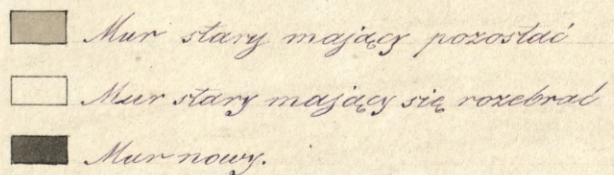 Mur stary mający pozostać
Mur stary mający się rozebrać
Mur nowy.